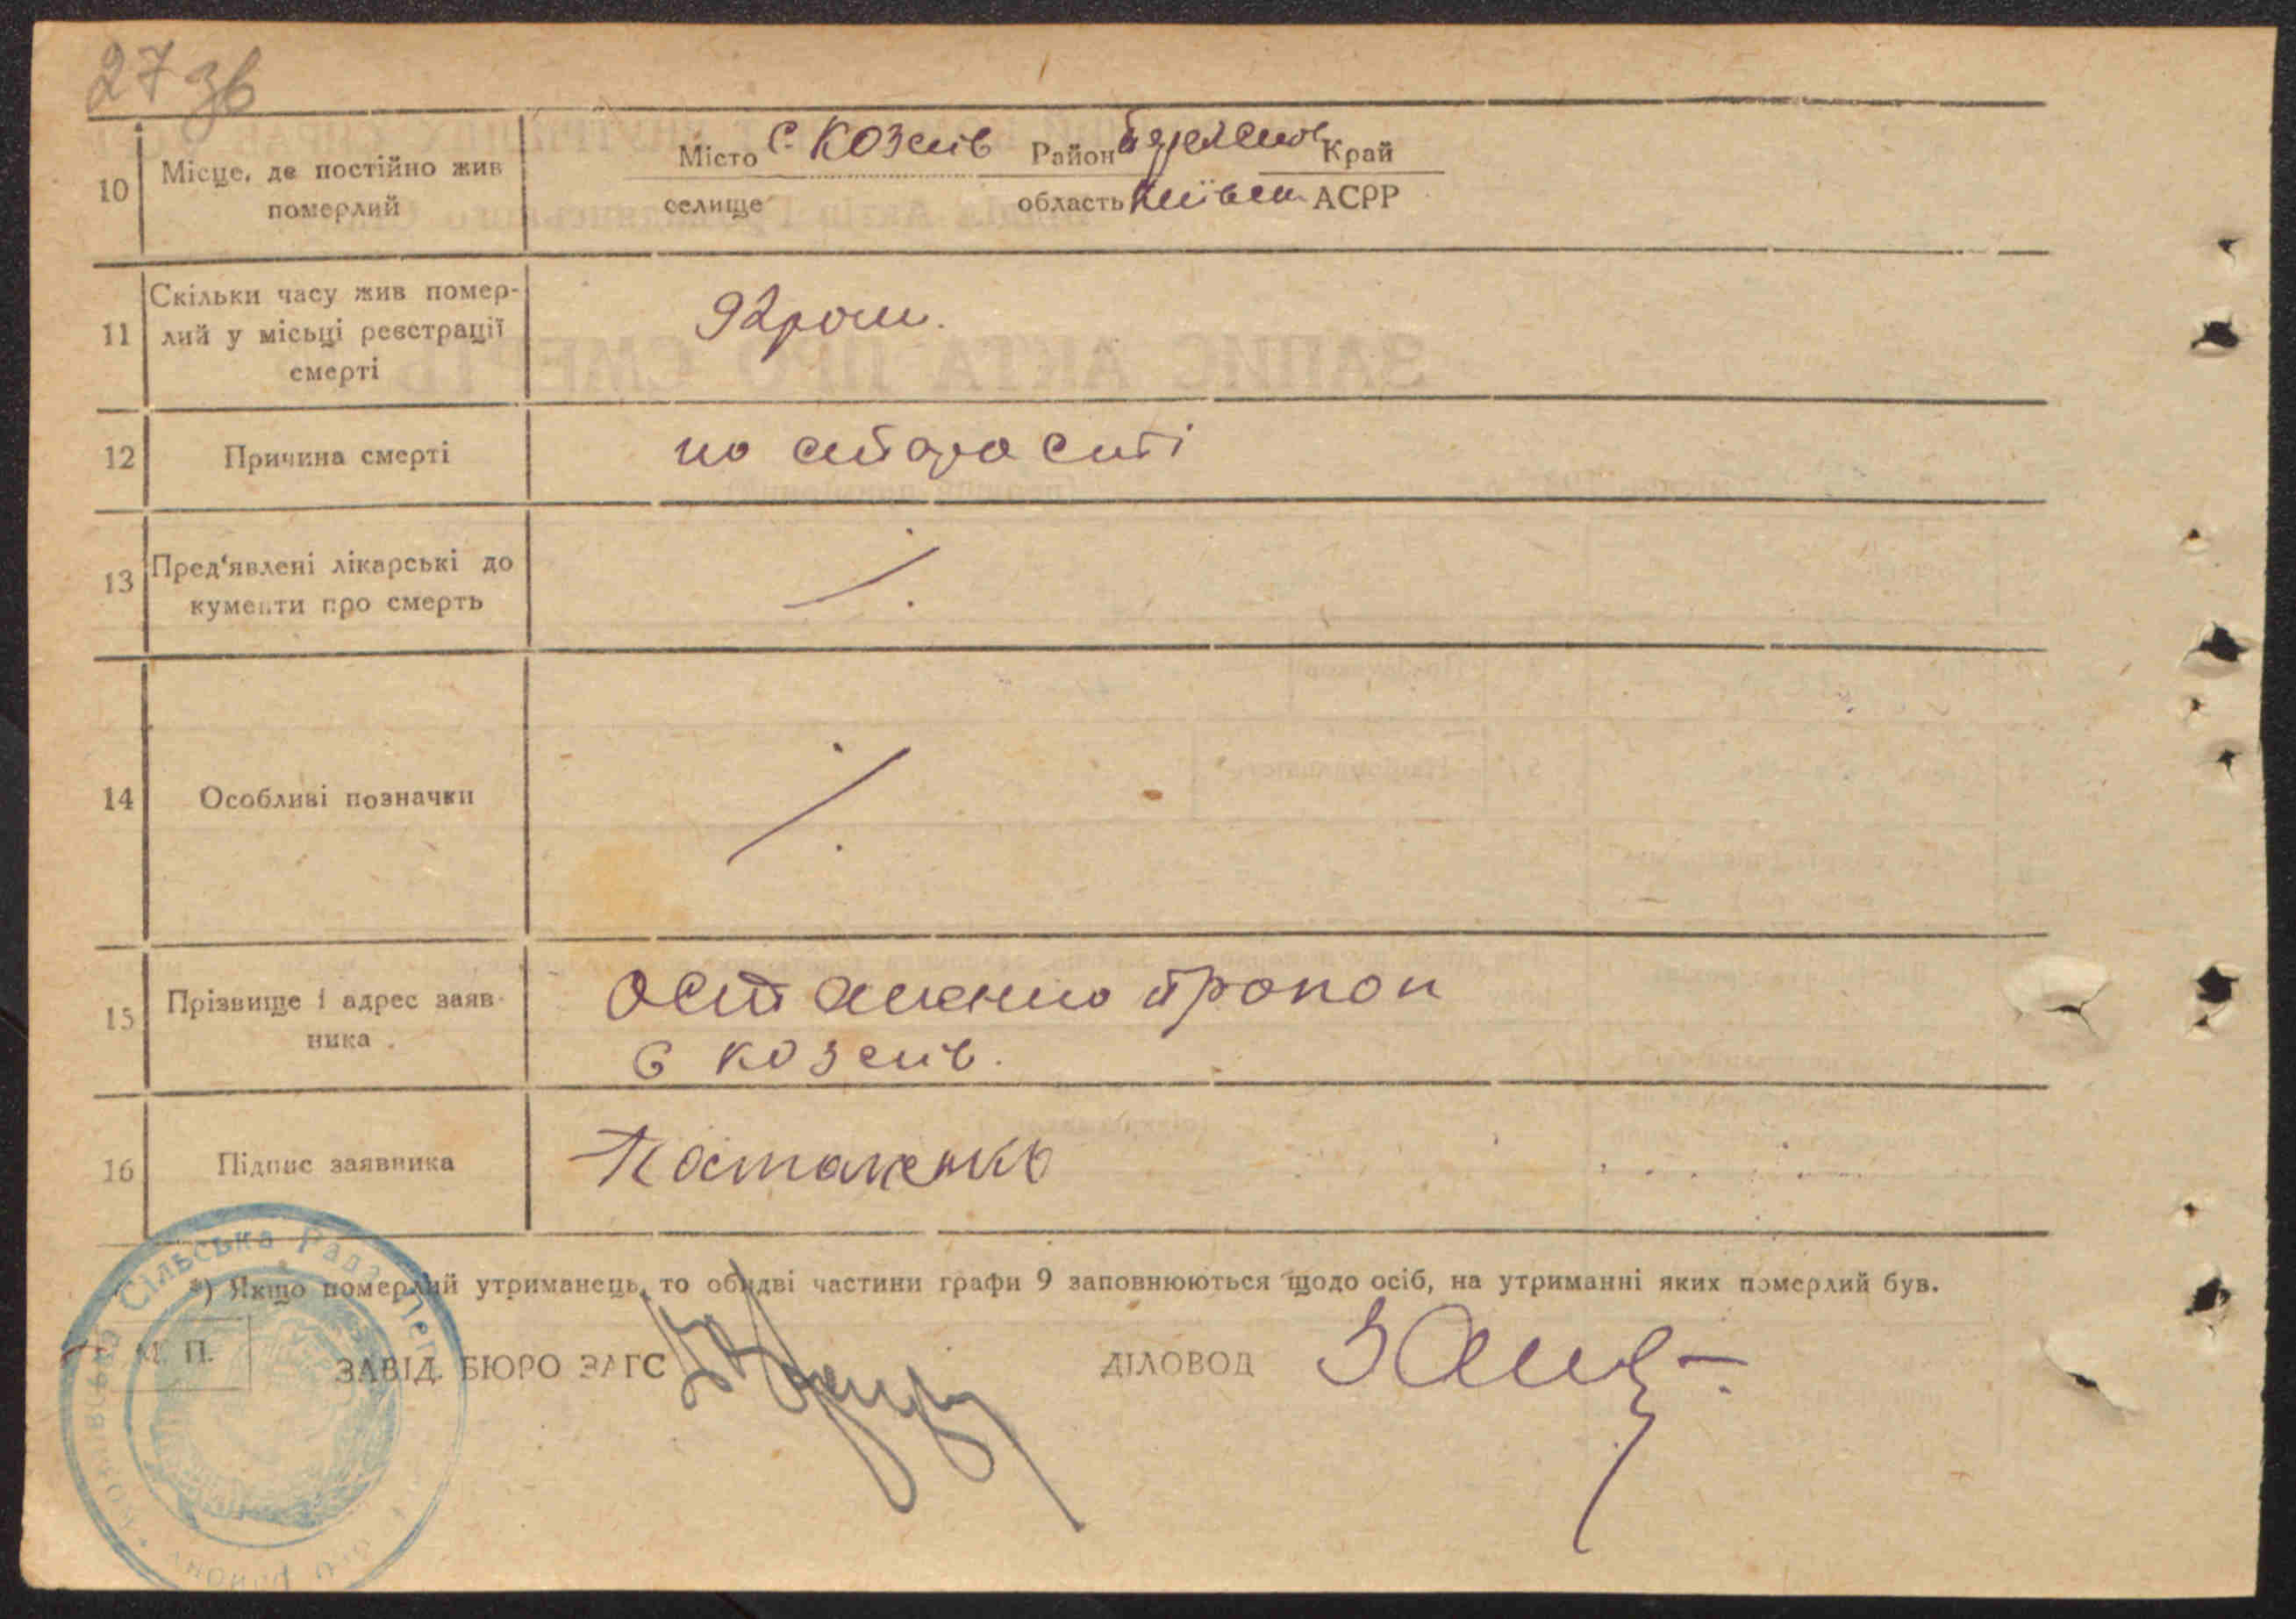 27 зв
10 Місце, де постійно жив
померлий
Місто с. Козлів Район Край
селище область Київськ АСРР
11 Скільки часу жив помер-
лий у місьці реєстрації
смерті
92 роки.
12 Причина смерті по старості
13 Пред'явлені лікарські до
кументи про смерть
14 Особливі позначки
15 Прізвище і адрес заяв-
ника
Остапенко Прокоп
с Козлів.
16 Підпис заявника
Сільська Рада
*) Якщо померлий утриманець, то обидві частини графи 9 заповнюються щодо осіб, на утриманні яких померлий був.
М. П.
ЗАВІД. БЮРО ЗАГС ДІЛОВОД
району